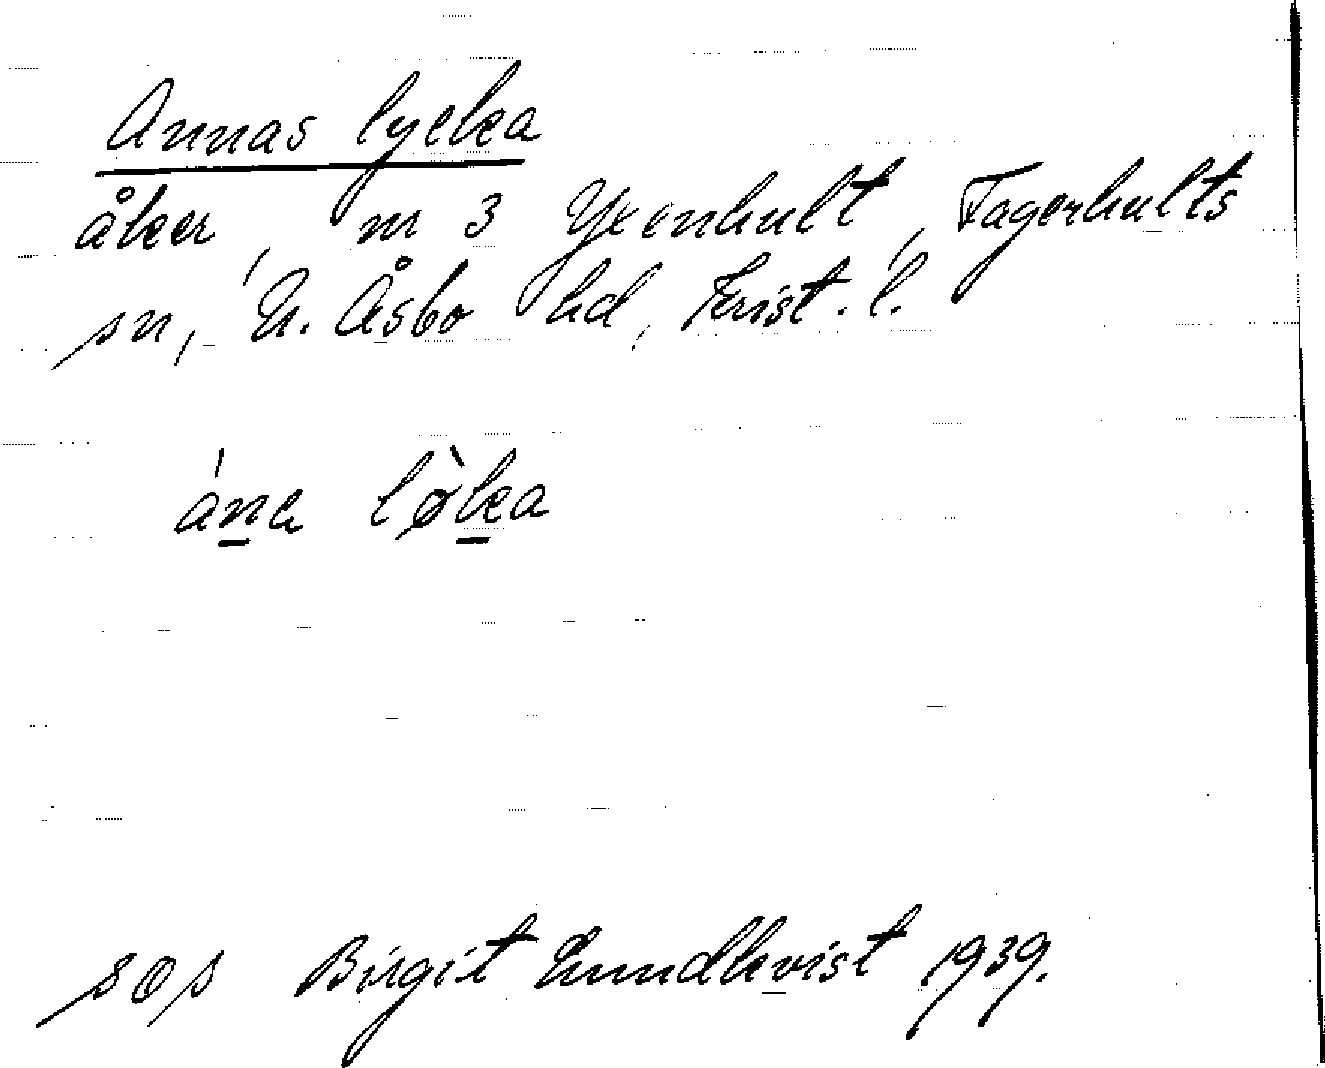 Annas lycka
åker, nr 3 Yxenhult, Fagerhults
sn, N. Åsbo hd, Krist. l.
løka
sØs Birgit Lundkvist 1939.